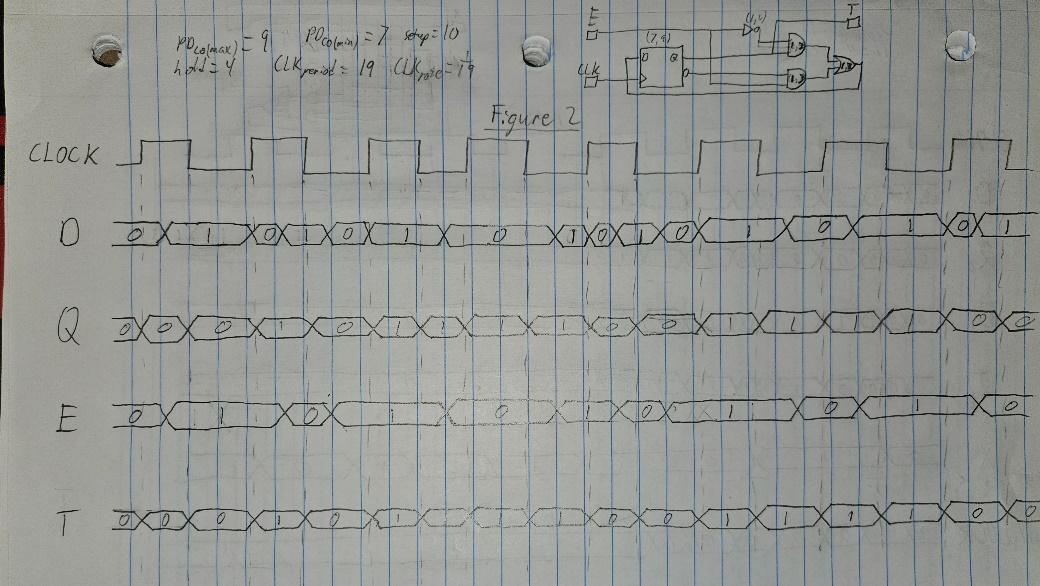 PD_CO(max) = 9 PD_CO(min) = 7 setup = 10
hold = 4 CLK_period = 19 CLK_rate = 1/19
E (1,1) T
(7,9)
D Q 1,2
CLK
1,2
Figure 2
CLOCK
D 0 1 0 1 0 1 0 1 0 1 0 1 0 1 0 1
Q 0 0 0 1 0 1 1 1 1 0 0 1 1 1 1 0 0
E 0 1 0 1 0 1 0 1 0 1 0
T 0 0 0 1 0 1 1 1 0 0 1 1 1 1 0 0